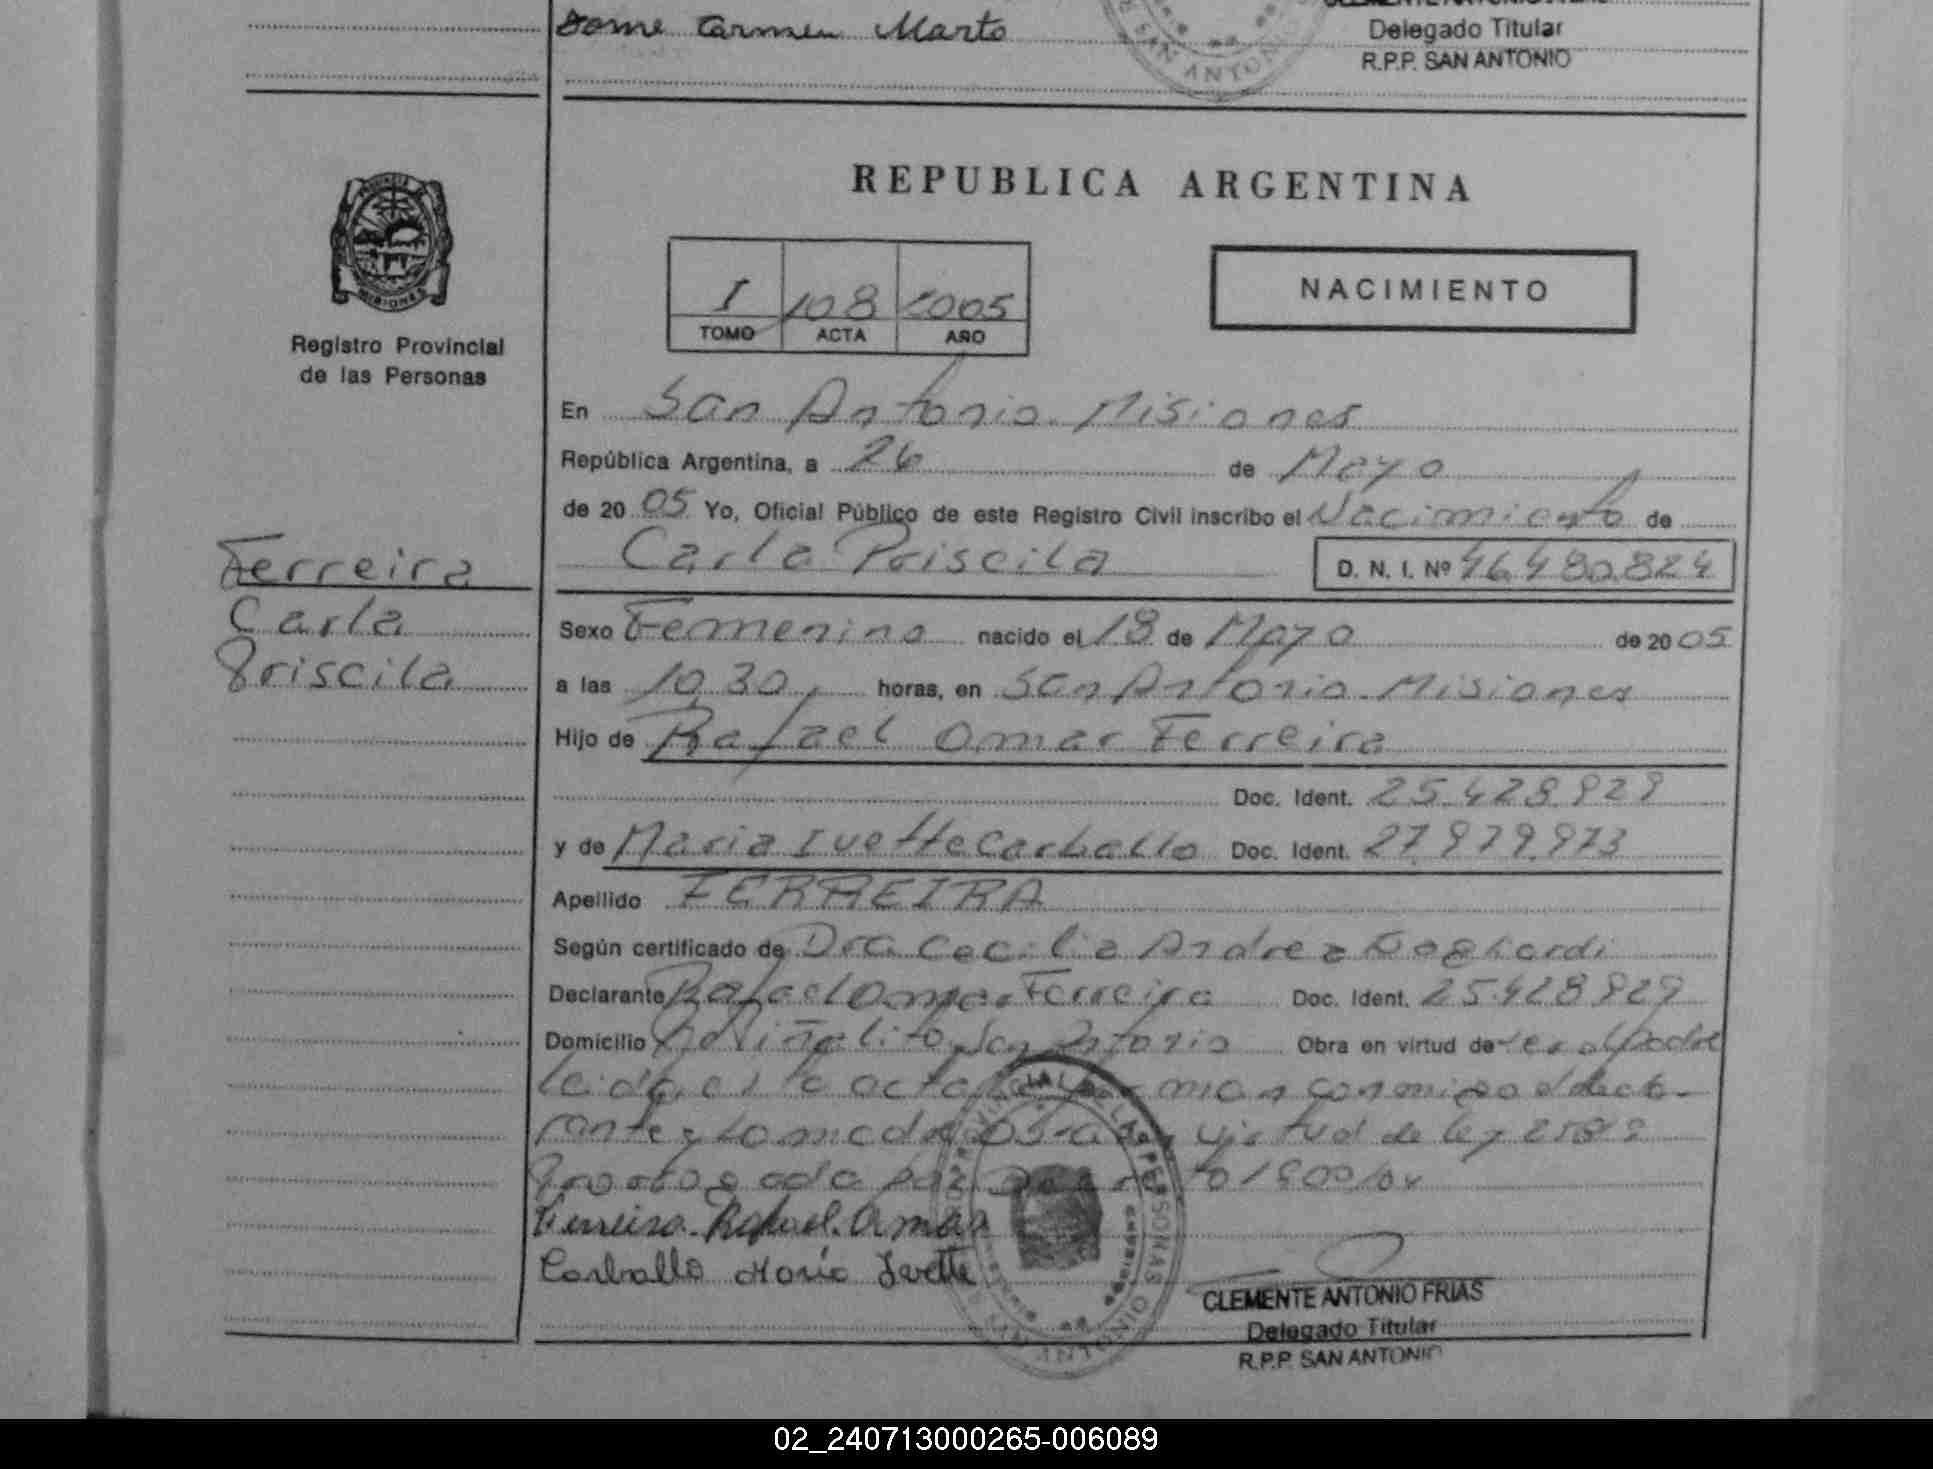 Dome Carmen Marto
Delegado Titular
R.P.P. SAN ANTONIO
SAN ANTONIO
REPUBLICA ARGENTINA
I 108 2005
TOMO ACTA AÑO
NACIMIENTO
MISIONES
Registro Provincial
de las Personas
En San Antonio Misiones
República Argentina, a 26 de Mayo
de 20 05 Yo, Oficial Público de este Registro Civil inscribo el Nacimiento de
Carla Priscila D. N. I. Nº 46.480.824
Ferreira
Carla
Priscila
Sexo Femenino nacido el 18 de Mayo de 20 05
a las 10,30, horas, en San Antonio Misiones
Hijo de Rafael Omar Ferreira
Doc. Ident. 25.428.929
y de Maria Ivette Carballo Doc. Ident. 27.979.973
Apellido FERREIRA
Según certificado de Dra Cecilia Andrea
Declarante Rafael Omar Ferreira Doc. Ident. 25.428.929
Domicilio San Antonio Obra en virtud de ser el Padre
Leida el acta firman conmigo el decla-
rante y la madre virtud de ley
por
Ferreira Rafael Omar
Carballo María Ivette
CLEMENTE ANTONIO FRIAS
Delegado Titular
R.P.P. SAN ANTONIO
02_240713000265-006089